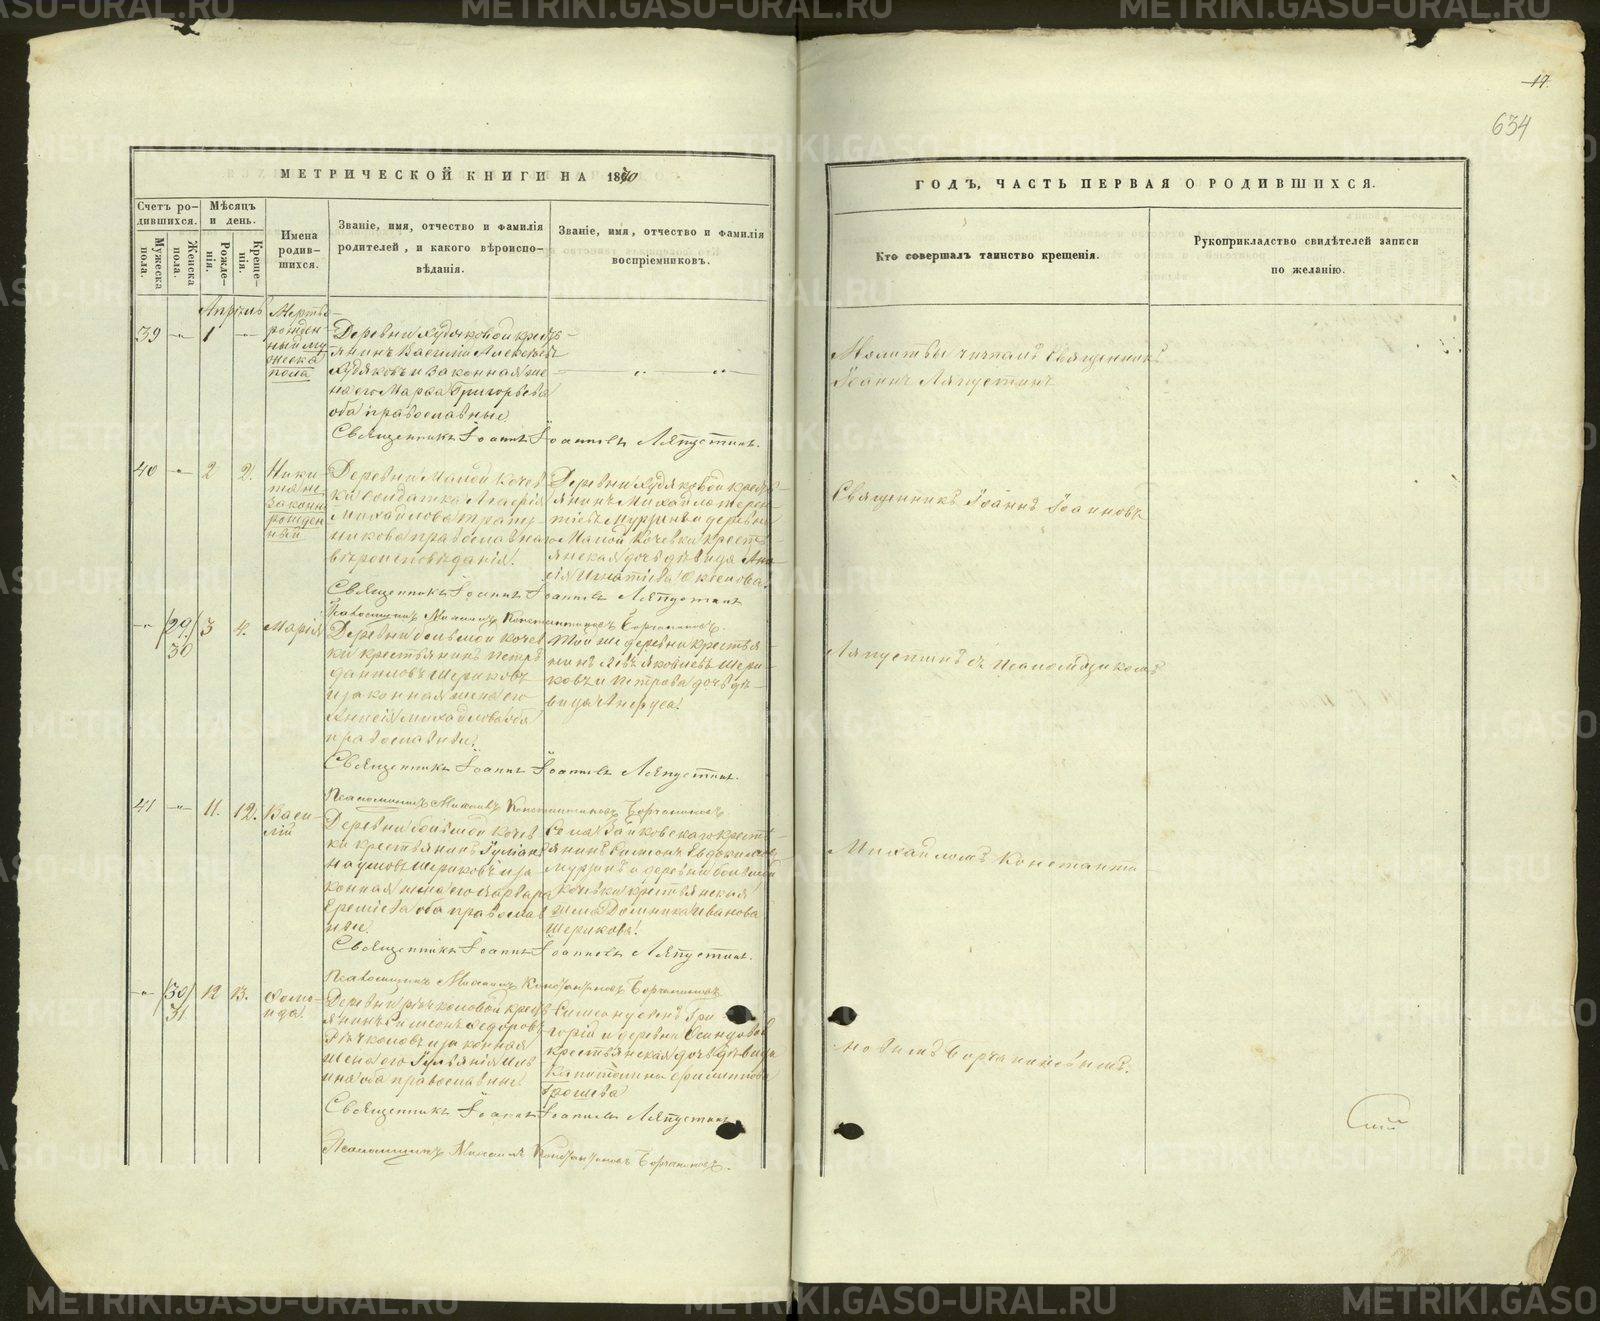 METRIKI.GASO-URAL.RU
17.
634
МЕТРИЧЕСКОЙ КНИГИ НА 1870
ГОДЪ, ЧАСТЬ ПЕРВАЯ О РОДИВШИХСЯ.
Счетъ ро-
дившихся.
Мужеска
пола.
Женска
пола.
Мѣсяцъ
и день.
Рожде-
нія.
Креще-
нія.
Имена
родив-
шихся.
Званіе, имя, отчество и фамилія
родителей, и какого вѣроиспо-
вѣданія.
Званіе, имя, отчество и фамилія
воспріемниковъ.
Кто совершалъ таинство крещенія.
Рукоприкладство свидѣтелей записи
по желанію.
Апрѣль
39 1
Мертво-
рожден-
ный му-
жеска
пола
Деревни Худяковой кресть-
янинъ Василій Алексѣевъ
Худяковъ и законная же-
на его Марѳа Григорьева
оба православные
Молитвы читалъ Священникъ
Іоаннъ Ляпустинъ
Священникъ Іоаннъ Іоанновъ Ляпустинъ.
40 2 2.
Ники-
та не
законно
рожден
ный
Деревни Малой Кочев
ки солдатка
Михайлова
православнаго
вѣроисповѣданія.
Деревни Худяковой кресть-
янинъ Михаилъ Терен-
тіевъ Мурзинъ и деревни
Малой Кочевки кресть-
янская дочь дѣвица
Игнатіева
Священникъ Іоаннъ Іоанновъ
Священникъ Іоаннъ Іоанновъ Ляпустинъ
Псаломщикъ Михаилъ Константиновъ Борчаниновъ.
29. 30 3 4.
Марія
Деревни большой Кочев
ки крестьянинъ Петръ
Даниловъ Шериковъ
и законная жена его
Анисія Михайлова оба
православные.
Той же деревни крестья-
нинъ Левъ Яковлевъ Шери-
ковъ и Петрова дочь дѣ-
вица
Ляпустинъ съ Псаломщикомъ
Священникъ Іоаннъ Іоанновъ Ляпустинъ.
Псаломщикъ Михаилъ Константиновъ Борчаниновъ
41 11. 12.
Васи-
лій
Деревни большой Кочев
ки крестьянинъ Іуліанъ
Наумовъ Шериковъ и за
конная жена его Варвара
Еремѣева оба православ
ные.
Села Зайковскаго кресть-
янинъ Евдокимовъ
Мурзинъ и деревни большой
Кочевки крестьянская
жена Домника Иванова
Шерикова.
Михаиломъ Константи-
Священникъ Іоаннъ Іоанновъ Ляпустинъ.
Псаломщикъ Михаилъ Константиновъ Борчаниновъ
30 31 12 13.
Ѳомо-
ида
Деревни Рѣчкаловой крест
янинъ Симеонъ Ѳедоровъ
Рѣчкаловъ и законная
жена его Іуліанія
оба православные
Симеонъ сынъ Гри-
горій и деревни
крестьянская дочь дѣвица
Капитолина Филиппова
новымъ Борчаниновымъ.
Священникъ Іоаннъ Іоанновъ Ляпустинъ
Псаломщикъ Михаилъ Константиновъ Борчаниновъ.